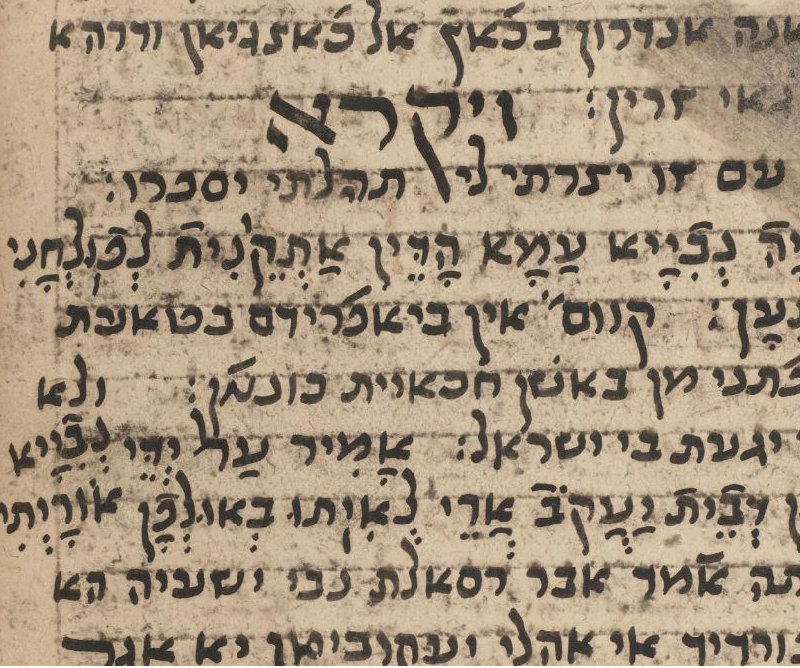 אנדרון בכ̇אץ אל כ̇אצגיאן ודרהא
זרין: ויקרא
עם זו יצרתי לי תהלתי יספרו:
נְבִייָא עַמָא הָדֵין אַתְקֵנִית לְפוֹלְחָנִי
קוום אין ביאפרידם בטאעת
מן באשן חכאוית כונשן: ולא
יגעת בי ישראל: אֲמִיר עַל יְדֵי נְבִייָא
דְבֵית יַעֲקֹב אֲרֵי לְאִיתו בְאולְפַן אורָיְתִי
אמר אבר רסאלת נבי ישעיה הא
אי אהלי יעקוביאן יא אגר